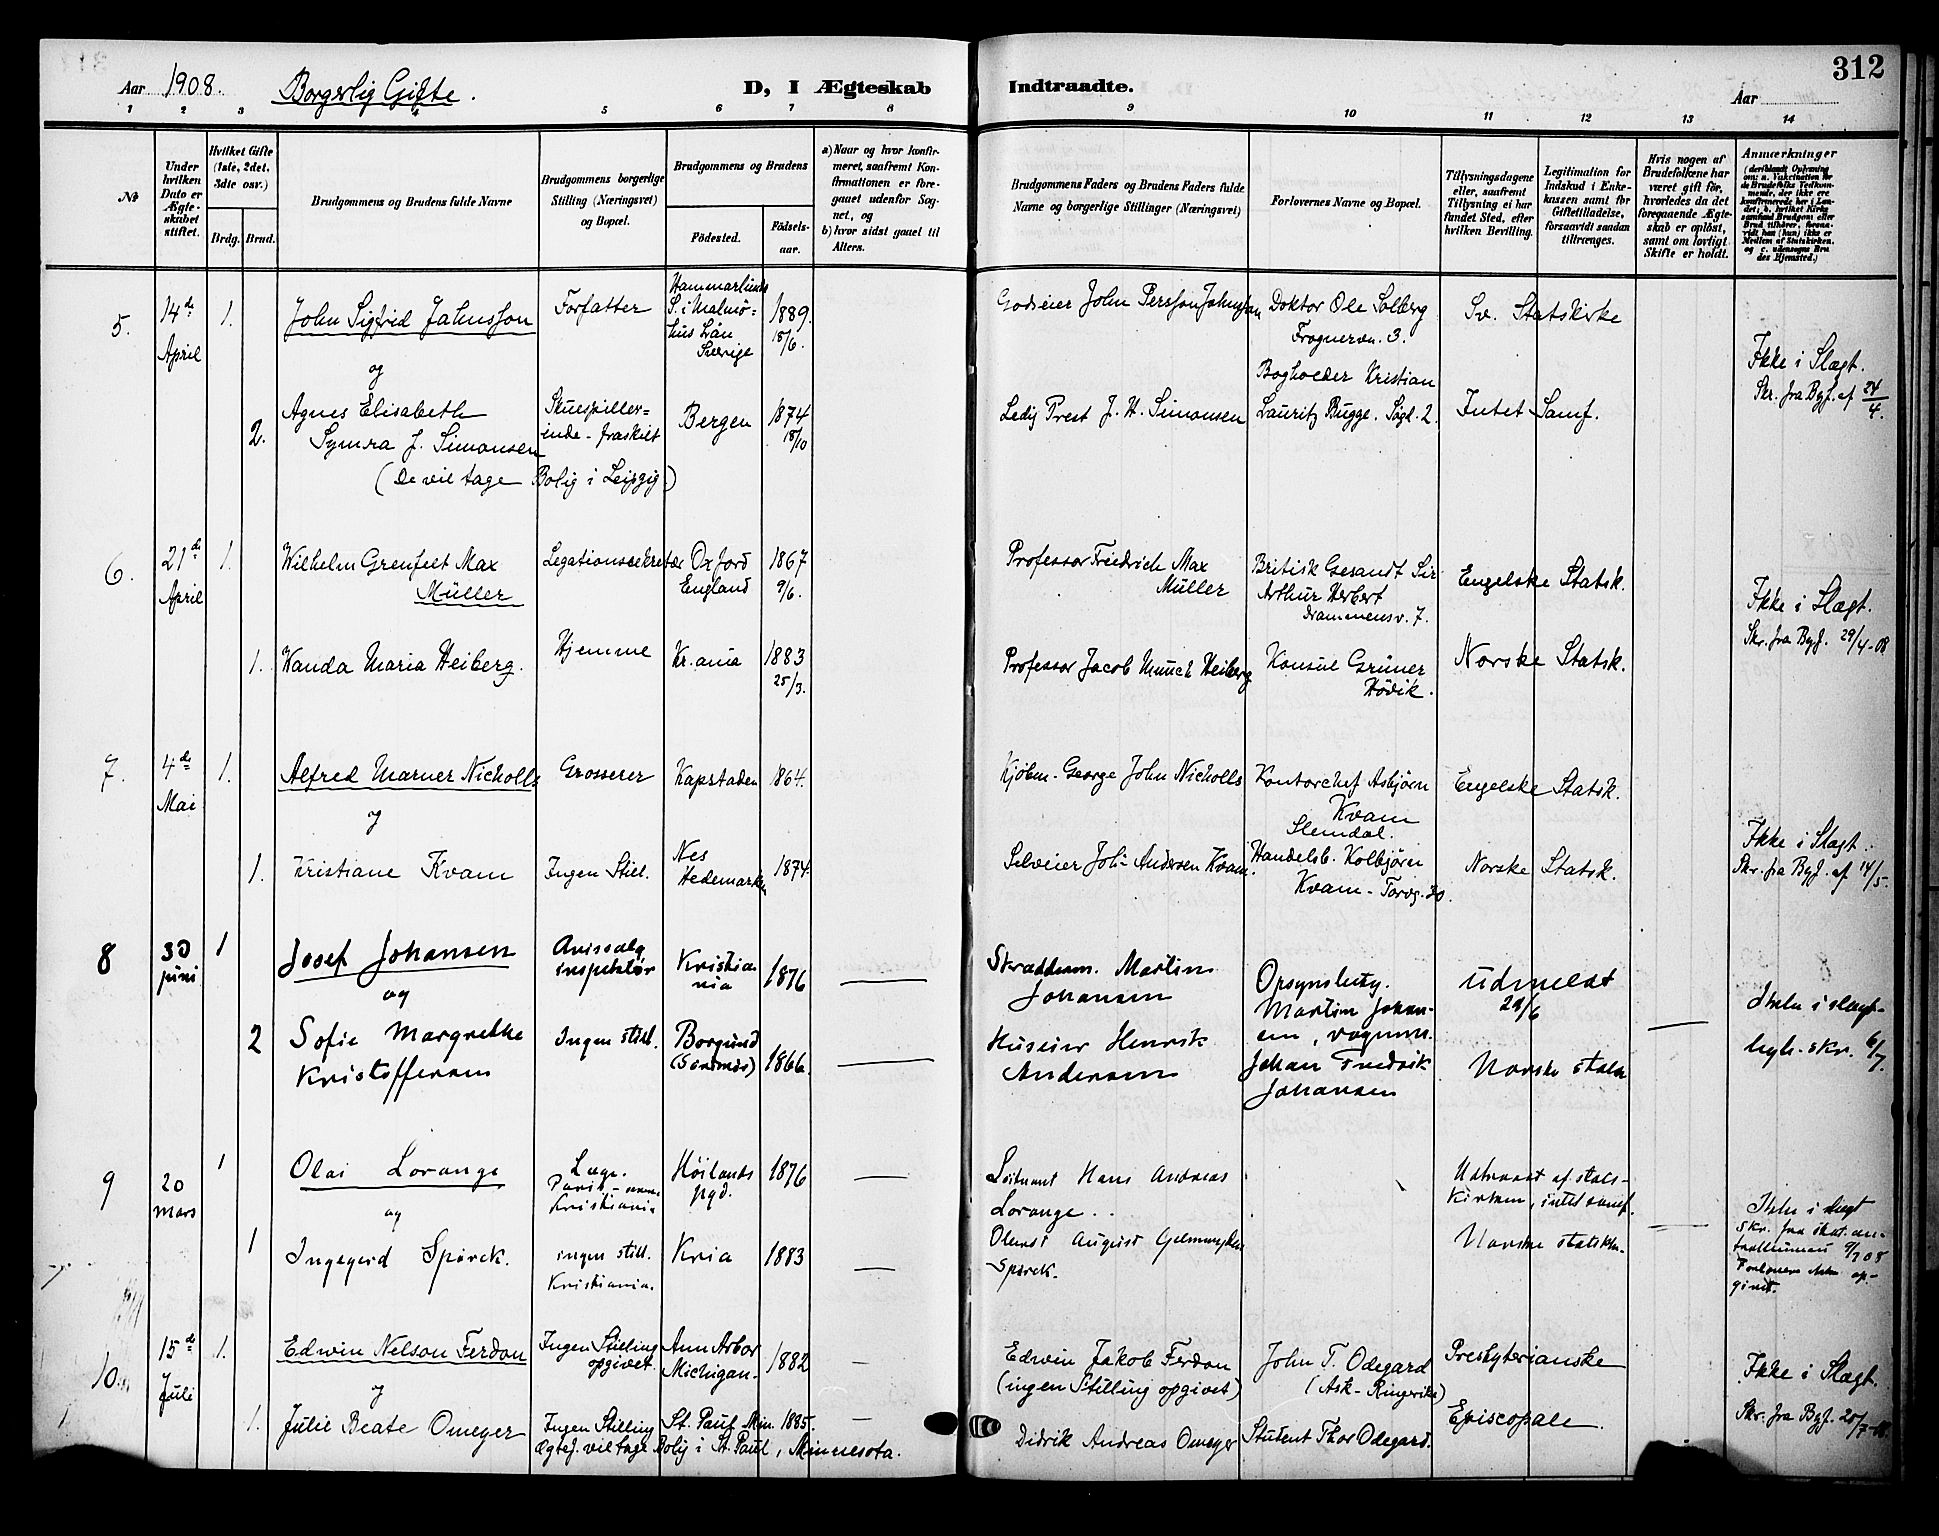 Aar 1908. Borgerlig Gifte.
D, I Ægteskab Indtraadte.
312
Aar
1 2 3 4 5 6 7 8 9 10 11 12 13 14
№
Under hvilken Dato er Ægteskabet stiftet.
Hvilket Gifte (1ste, 2det, 3die osv.)
Brdg. Brud.
Brudgommens og Brudens fulde Navne
Brudgommens borgerlige Stilling (Næringsvei) og Bopæl.
Brudgommens og Brudens
Fødested.
Fødselsaar.
a) Naar og hvor konfirmeret, saafremt Konfirmationen er foregaaet udenfor Sognet, og
b) hvor sidst gaaet til Alters.
Brudgommens Faders og Brudens Faders fulde Navne og borgerlige Stillinger (Næringsvei)
Forlovernes Navne og Bopæl.
Tillysningsdagene eller, saafremt Tillysning ei har fundet Sted, efter hvilken Bevilling.
Legitimation for Indskud i Enkekassen samt for Giftetilladelse, forsaavidt saadan tiltrænges.
Hvis nogen af Brudefolkene har været gift før, hvorledes da det foregaaende Ægteskab er opløst, samt om lovligt Skifte er holdt.
Anmærkninger
5. 14de April 1. John Sigfrid Jahnsson Forfatter Hammarlunds S. i Malmöhus Län Sverige 1889. 18/6. Godseier John Persson Jahnsson Doktor Ole Solberg Frognervn. 3. Sv. Statskirke
og
2. Agnes Elisabeth Symra J. Simonsen Skuespillerinde - fraskilt Bergen 1874 18/10 Ledig Prest J. H. Simonsen Bogholder Kristian Lauritz Bugge. Sogd. 2. Intet Samf. Ikke i Slægt. Skr. fra Byf. af 24/4.
(De vil tage Bolig i Leipzig)
6. 21de April 1. Wilhelm Grenfell Max Müller Legationssekretær Oxford England 1867 9/6. Professor Freidrich Max Müller Britisk Gesandt Sir Arthur Herbert Drammensv. 7. Engelske Statsk.
1. Wanda Maria Heiberg. Hjemme Kr.ania 1883 25/3. Professor Jacob Munch Heiberg Konsul Grüner Hövik. Norske Statsk. Ikke i Slægt. Skr. fra Byf. 29/4-08
7. 4de Mai 1. Alfred Marner Nicholls Grosserer Kapstaden 1864. Kjøbm. George John Nicholls Kontorchef Asbjørn Kvam Slemdal. Engelske Statsk.
1. Kristiane Kvam Ingen Still. Nes Hedemarken 1874. Selveier Joh. Andersen Kvam. Handelsb. Kolbjørn Kvam - Torvg. 30. Norske Statsk. Ikke i Slægt. Skr. fra Byf. af 14/5.
8 30 juni 1 Josef Johansen Avissalginspektør Kristiania 1876 Skræddeam. Martin Johansen Opsynsbetj. Martin Johansen, vognm. Udmeldt 29/6
og
2 Sofie Margrethe Kristoffersen Ingen still. Borgund (Søndmør) 1866. Huseier Henrik Andersen Johan Fredrik Johansen Norske statsk Ikke i slægt. byf. skr. 6/7.
9 20 mars 1 Olai Lorange Læge. Kristiania Høilands pgd. 1876 Løitnant Hans Andreas Lorange. Udtraadt af statskirken, intet samf.
og
1 Ingegerd Spørck. ingen still. Kristiania. Kria 1883 Oberst August Spørck. Norske statskk. Ikke i slegt 9/7 08 Forlovere ikke opgivet.
10. 15de Juli 1. Edwin Nelson Ferdon Ingen Stilling opgivet. Ann Arbor Michigan 1882 Edwin Jakob Ferdon (ingen Stilling opgivet) John T. Odegard (Ask - Ringerike) Presbyterianske
1. Julie Beate Omeyer Ingen Stilling St. Paul Min. 1885. Didrik Andreas Omeyer Student Thor Odegard. Episcopale. Ikke i Slægt. Skr. fra Byf. 20/7-08.
Ægtef. vil tage Bolig i St. Paul, Minnesota.